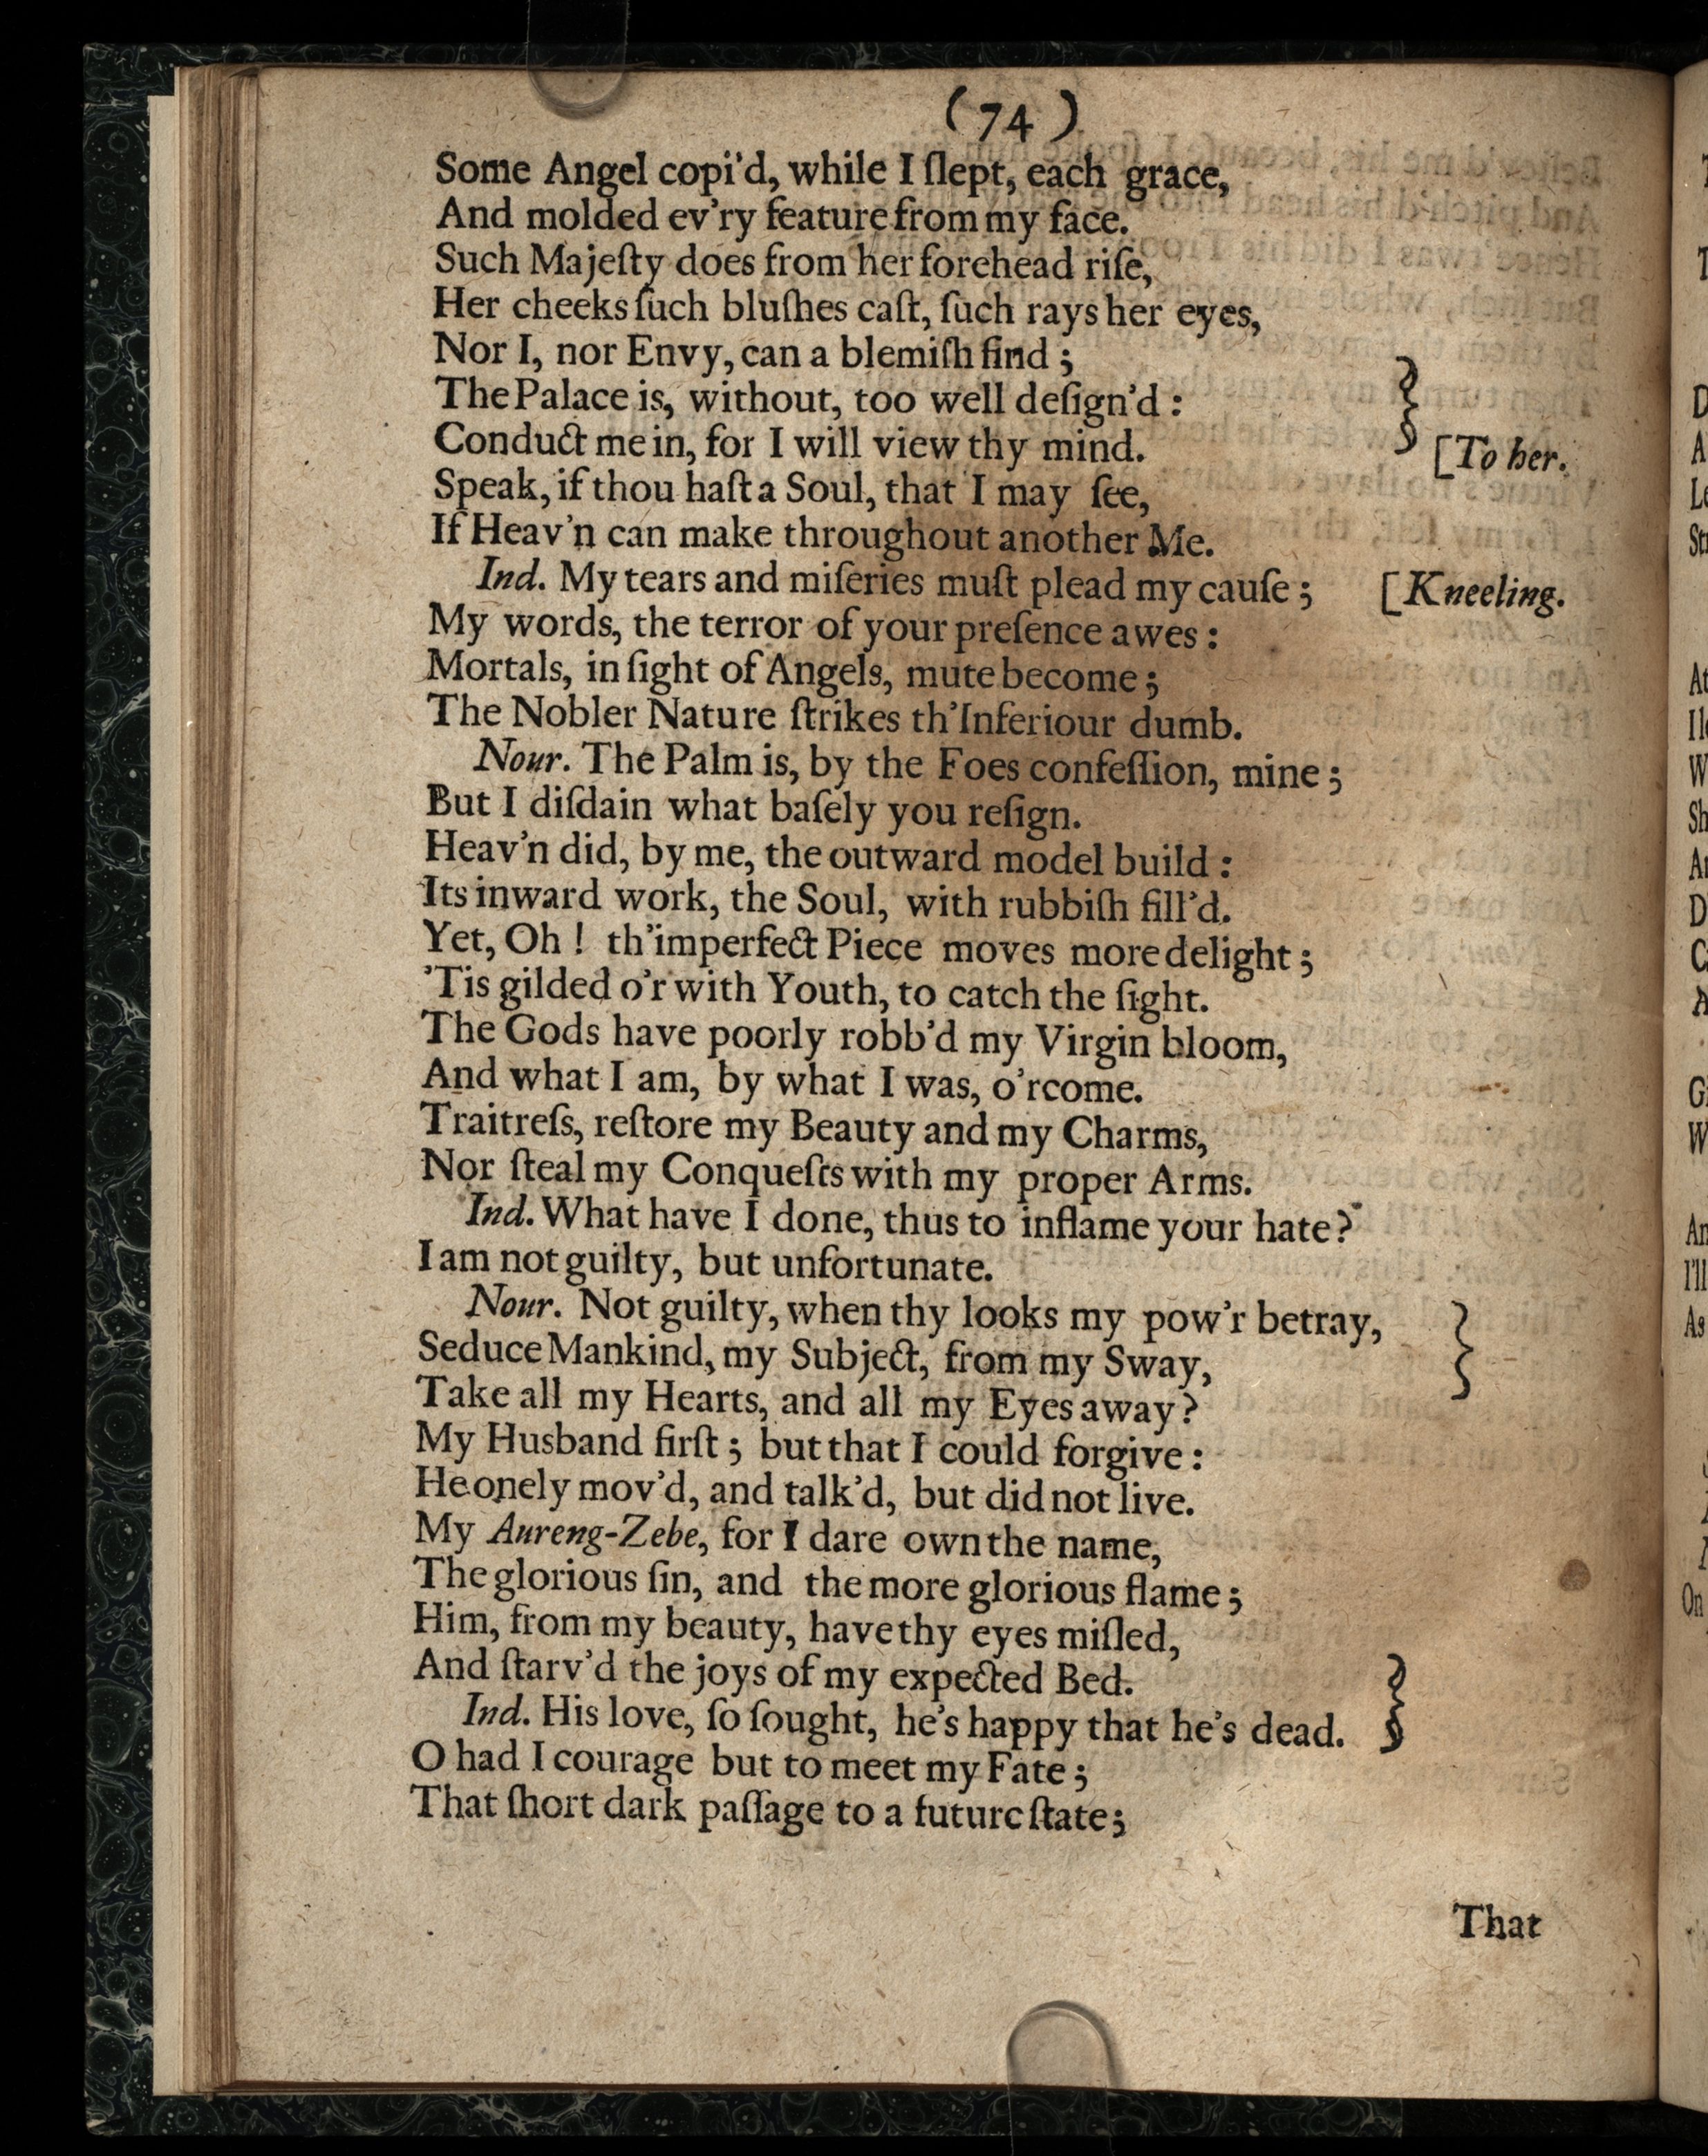 (74)
Some Angel copi'd, while I ſlept, each grace,
And molded ev'ry feature from my face.
Such Majeſty does from her forehead riſe,
Her cheeks ſuch bluſhes caſt, ſuch rays her eyes,
Nor I, nor Envy, can a blemiſh find;
The Palace is, without, too well deſign'd:
Conduct me in, for I will view thy mind. [To her.
Speak, if thou haſt a Soul, that I may ſee,
If Heav'n can make throughout another Me.
Ind. My tears and miſeries muſt plead my cauſe; [Kneeling.
My words, the terror of your preſence awes:
Mortals, in ſight of Angels, mute become;
The Nobler Nature ſtrikes th'Inferiour dumb.
Nour. The Palm is, by the Foes confeſſion, mine;
But I diſdain what baſely you reſign.
Heav'n did, by me, the outward model build:
Its inward work, the Soul, with rubbiſh fill'd.
Yet, Oh! th'imperfect Piece moves more delight;
'Tis gilded o'r with Youth, to catch the ſight.
The Gods have poorly robb'd my Virgin bloom,
And what I am, by what I was, o'rcome.
Traitreſs, reſtore my Beauty and my Charms,
Nor ſteal my Conqueſts with my proper Arms.
Ind. What have I done, thus to inflame your hate?
I am not guilty, but unfortunate.
Nour. Not guilty, when thy looks my pow'r betray,
Seduce Mankind, my Subject, from my Sway,
Take all my Hearts, and all my Eyes away?
My Husband firſt; but that I could forgive:
He onely mov'd, and talk'd, but did not live.
My Aureng-Zebe, for I dare own the name,
The glorious ſin, and the more glorious flame;
Him, from my beauty, have thy eyes miſled,
And ſtarv'd the joys of my expected Bed.
Ind. His love, ſo ſought, he's happy that he's dead.
O had I courage but to meet my Fate;
That ſhort dark paſſage to a future ſtate;
That